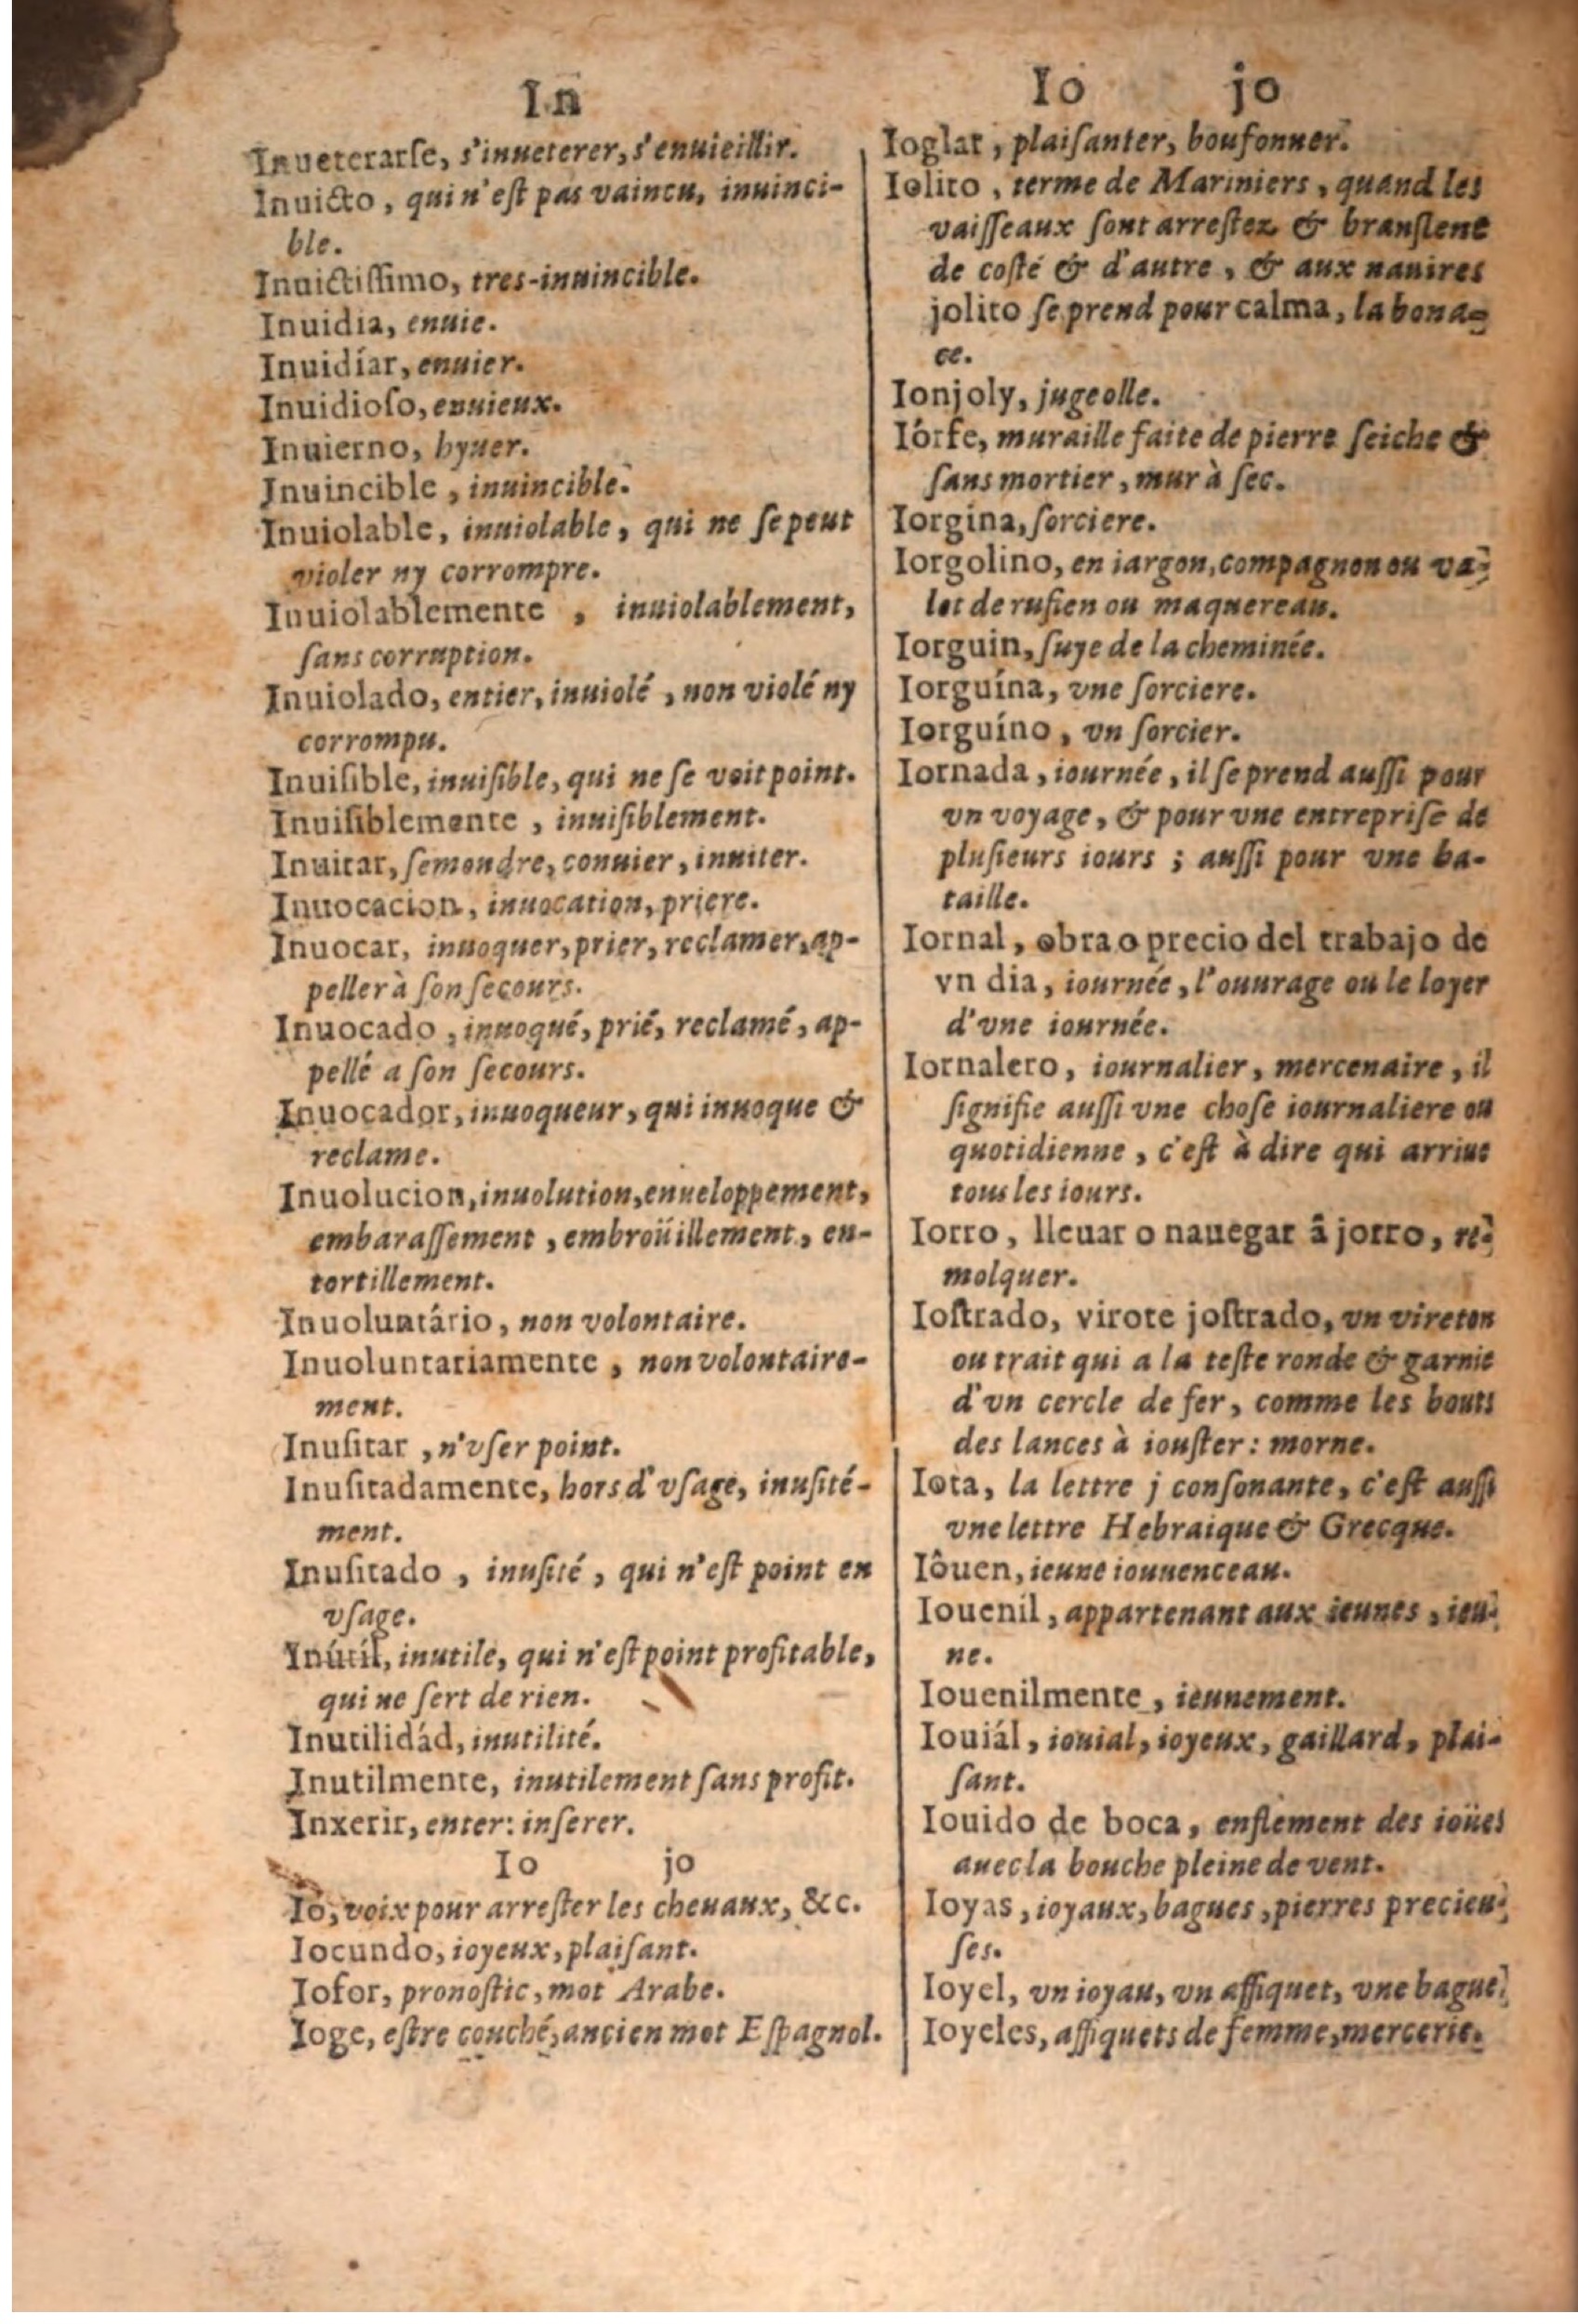 In
Inueterarſe, s'inueterer, s'enuieillir.
Inuicto, qui n'eſt pas vaincu, inuinci-
ble.
Inuictiſſimo, tres-inuincible.
Inuidia, enuie.
Inuidíar, enuier.
Inuidioſo, enuieux.
Inuierno, hyuer.
Inuincible, inuincible.
Inuiolable, inuiolable, qui ne ſe peut
violer ny corrompre.
Inuiolablemente, inuiolablement,
ſans corruption.
Inuiolado, entier, inuiolé, non violé ny
corrompu.
Inuiſible, inuiſible, qui ne ſe voit point.
Inuiſiblemente, inuiſiblement.
Inuitar, ſemondre, conuier, inuiter.
Inuocacion, inuocation, priere.
Inuocar, inuoquer, prier, reclamer, ap-
peller à ſon ſecours.
Inuocado, inuoqué, prié, reclamé, ap-
pellé a ſon ſecours.
Inuocador, inuoqueur, qui inuoque &
reclame.
Inuolucion, inuolution, enueloppement,
embaraſſement, embroüillement, en-
tortillement.
Inuoluntário, non volontaire.
Inuoluntariamente, non volontaire-
ment.
Inuſitar, n'vſer point.
Inuſitadamente, hors d'vſage, inuſité-
ment.
Inuſitado, inuſité, qui n'eſt point en
vſage.
Inútil, inutile, qui n'eſt point profitable,
qui ne ſert de rien.
Inutilidád, inutilité.
Inutilmente, inutilement ſans profit.
Inxerir, enter: inſerer.
Io jo
Io, voix pour arreſter les cheuaux, &c.
Iocundo, ioyeux, plaiſant.
Iofor, pronoſtic, mot Arabe.
Ioge, eſtre couché, ancien mot Eſpagnol.
Io jo
Ioglar, plaiſanter, boufonner.
Iolito, terme de Mariniers, quand les
vaiſſeaux ſont arreſtez & branſlent
de coſté & d'autre, & aux nauires
jolito ſe prend pour calma, la bona-
ce.
Ionjoly, jugeolle.
Iórfe, muraille faite de pierre ſeiche &
ſans mortier, mur à ſec.
Iorgina, ſorciere.
Iorgolino, en iargon, compagnon ou va-
let de rufien ou maquereau.
Iorguin, ſuye de la cheminée.
Iorguína, vne ſorciere.
Iorguíno, vn ſorcier.
Iornada, iournée, il ſe prend auſſi pour
vn voyage, & pour vne entrepriſe de
pluſieurs iours ; auſſi pour vne ba-
taille.
Iornal, obra o precio del trabajo de
vn dia, iournée, l'ouurage ou le loyer
d'vne iournée.
Iornalero, iournalier, mercenaire, il
ſignifie auſſi vne choſe iournaliere ou
quotidienne, c'eſt à dire qui arriue
tous les iours.
Iorro, lleuar o nauegar â jorro, re-
molquer.
Ioſtrado, virote joſtrado, vn vireton
ou trait qui a la teſte ronde & garnie
d'vn cercle de fer, comme les bouts
des lances à iouſter: morne.
Iota, la lettre j conſonante, c'eſt auſſi
vne lettre Hebraique & Grecque.
Iôuen, ieune iouuenceau.
Iouenil, appartenant aux ieunes, ieu-
ne.
Iouenilmente, ieunement.
Iouiál, iouial, ioyeux, gaillard, plai-
ſant.
Iouido de boca, enflement des ioües
auec la bouche pleine de vent.
Ioyas, ioyaux, bagues, pierres precieu-
ſes.
Ioyel, vn ioyau, vn affiquet, vne bague.
Ioyeles, affiquets de femme, mercerie.